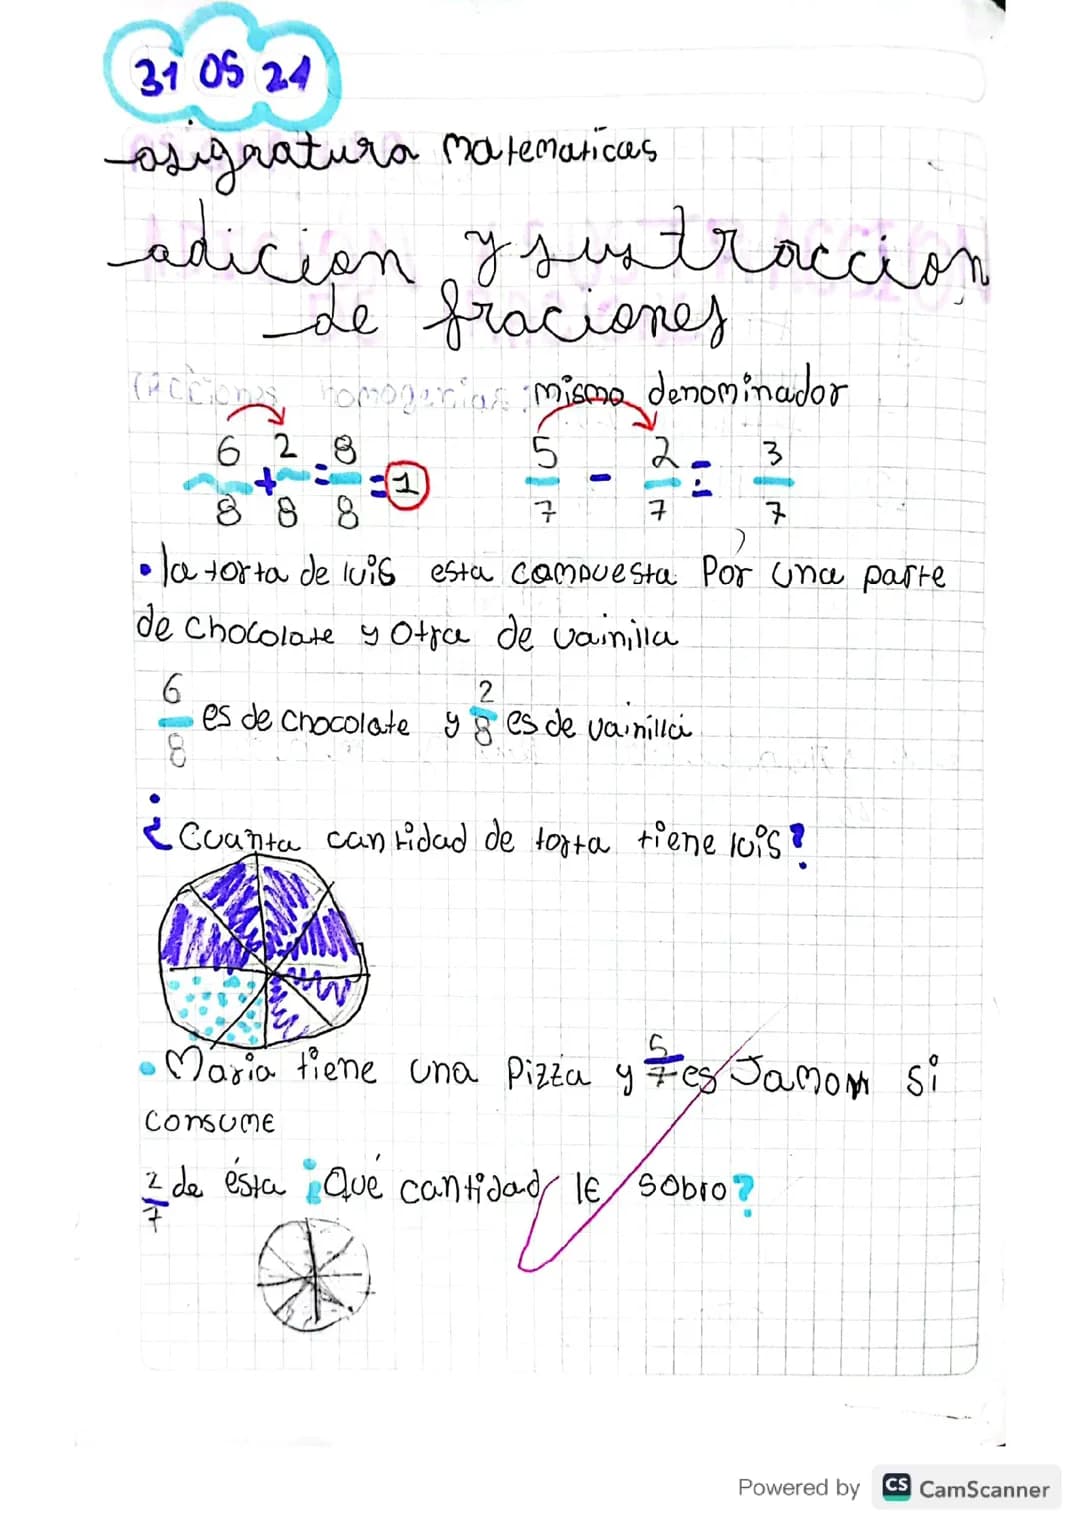 31 05 24
asignatura matematicas
adicion y sustraccion
de fraciones
homogenias: mismo denominador
6/8 + 2/8 = 8/8 = 1    5/7 - 2/7 = 3/7
• la torta de luis esta compuesta Por una parte
de chocolate y Otra de vainilla
6/8 es de chocolate y 2/8 es de vainilla
¿Cuanta cantidad de torta tiene luis?
• Maria tiene una Pizza y 5/7 es Jamom si
consume
2/7 de ésta ¿Qué cantidad le sobro?
Powered by CS CamScanner